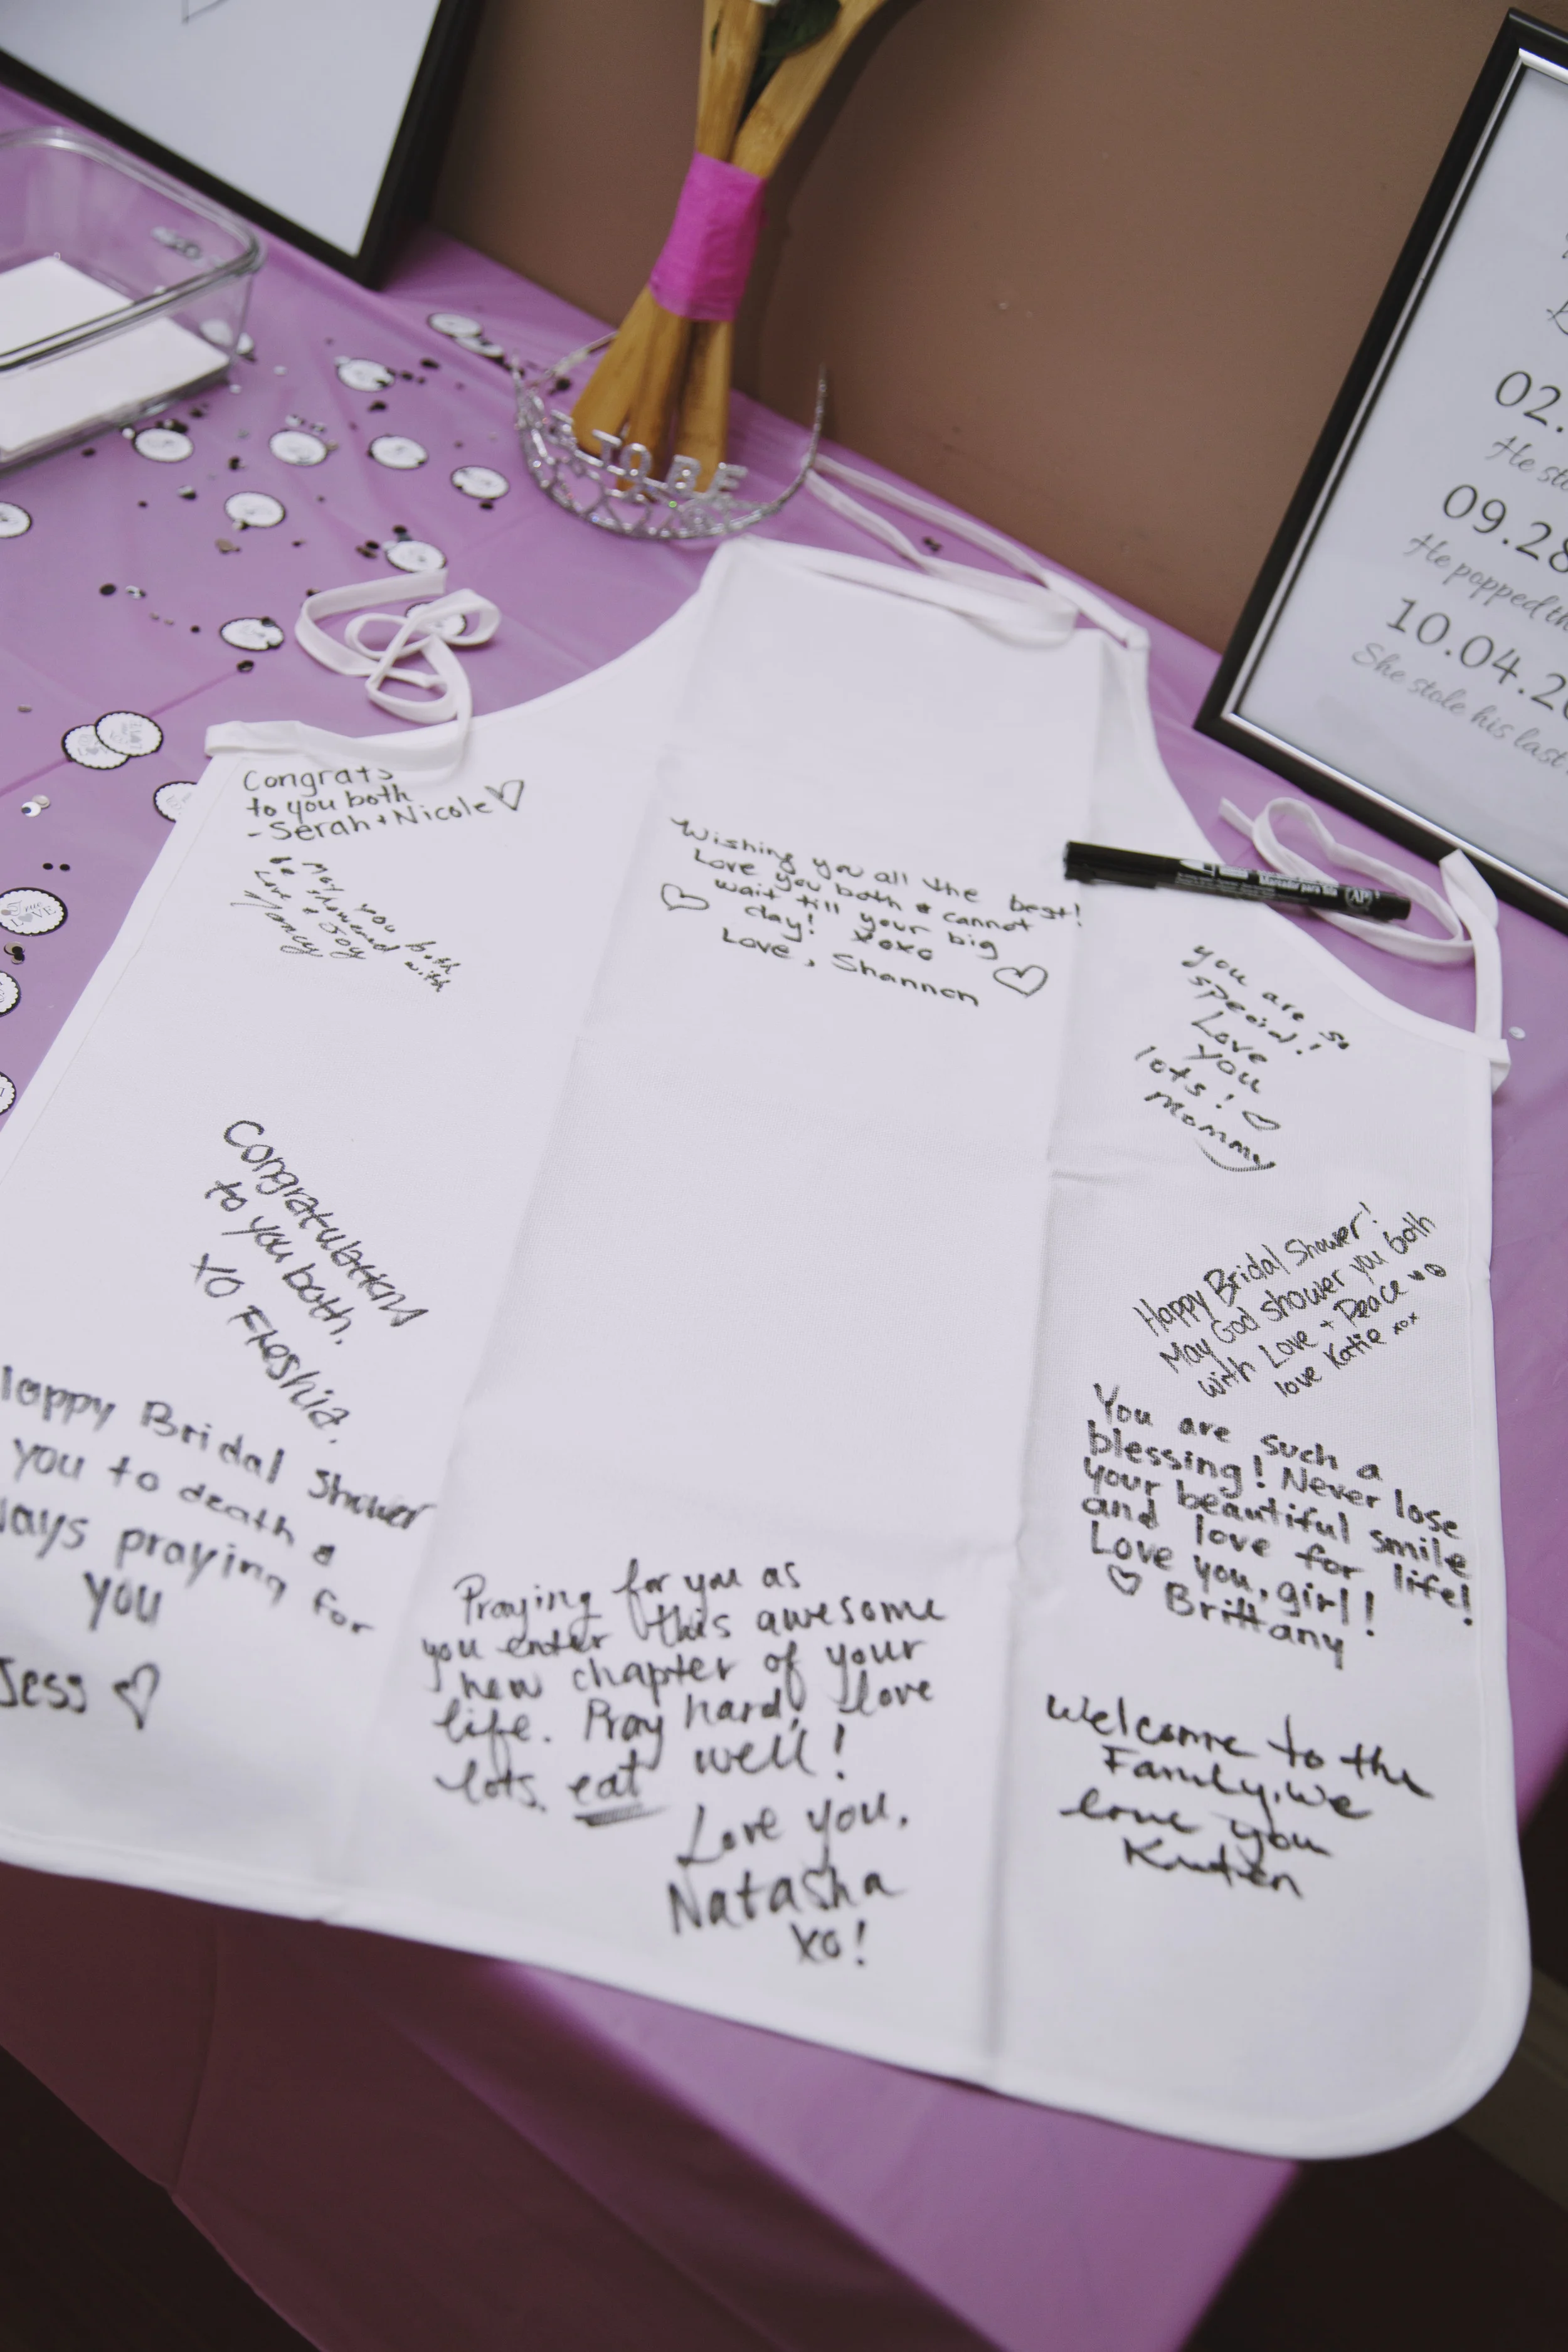 TO BE
02.
He sto
09.28
He popped th
10.04.20
She stole his last
Congrats
to you both
- Serah + Nicole ♡
May you both
be showered with
Love & Joy
Nancy
Wishing you all the best!
Love you both & cannot
wait till your big
day! xoxo
Love, Shannon
you are so
special!
Love
you
lots! ♡
Mommy
Congratulations
to you both.
XO Freshia.
Happy Bridal Shower!
May God shower you both
with Love + Peace
love Katie xox
You are such a
blessing! Never lose
your beautiful smile
and love for life!
Love you, girl!
♡ Brittany
Happy Bridal Shower
you to death &
ways praying for
you
Jess ♡
Praying for you as
you enter this awesome
new chapter of your
life. Pray hard, love
lots, eat well!
Love you,
Natasha
xo!
Welcome to the
Family, we
love you
True
LOVE